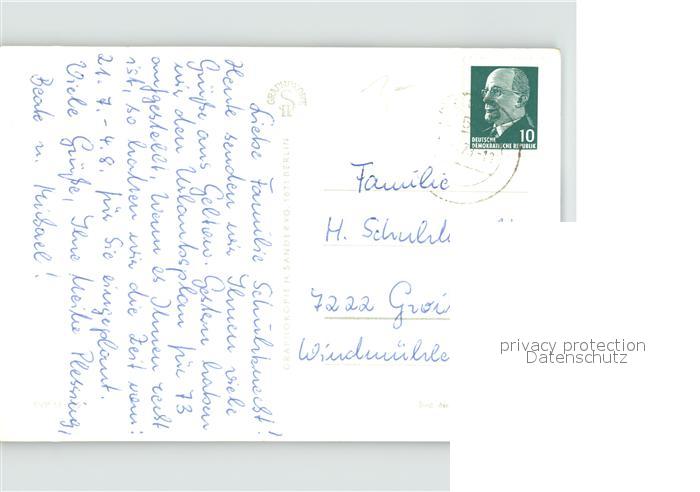 Liebe Familie Schulzkneist!
Heute senden wir Ihnen viele
Grüße aus Geltow. Gestern haben
wir den Urlaubsplan für 73
aufgestellt. Wenn es Ihnen recht
ist, so haben wir die Zeit vom:
21.7. - 4.8. für Sie eingeplant.
Viele Grüße, Ihre Meike Plessing,
Beate u. Michael!
GRAPHOKOPIE H. SANDER KG
BERLIN
DEUTSCHE
DEMOKRATISCHE REPUBLIK
10
Familie
H. Schulzk
7222 Groi
Windmühle
privacy protection
Datenschutz